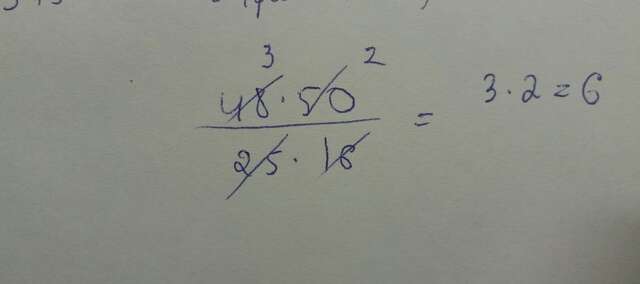 3 2
48·50
25·16
= 3·2=6